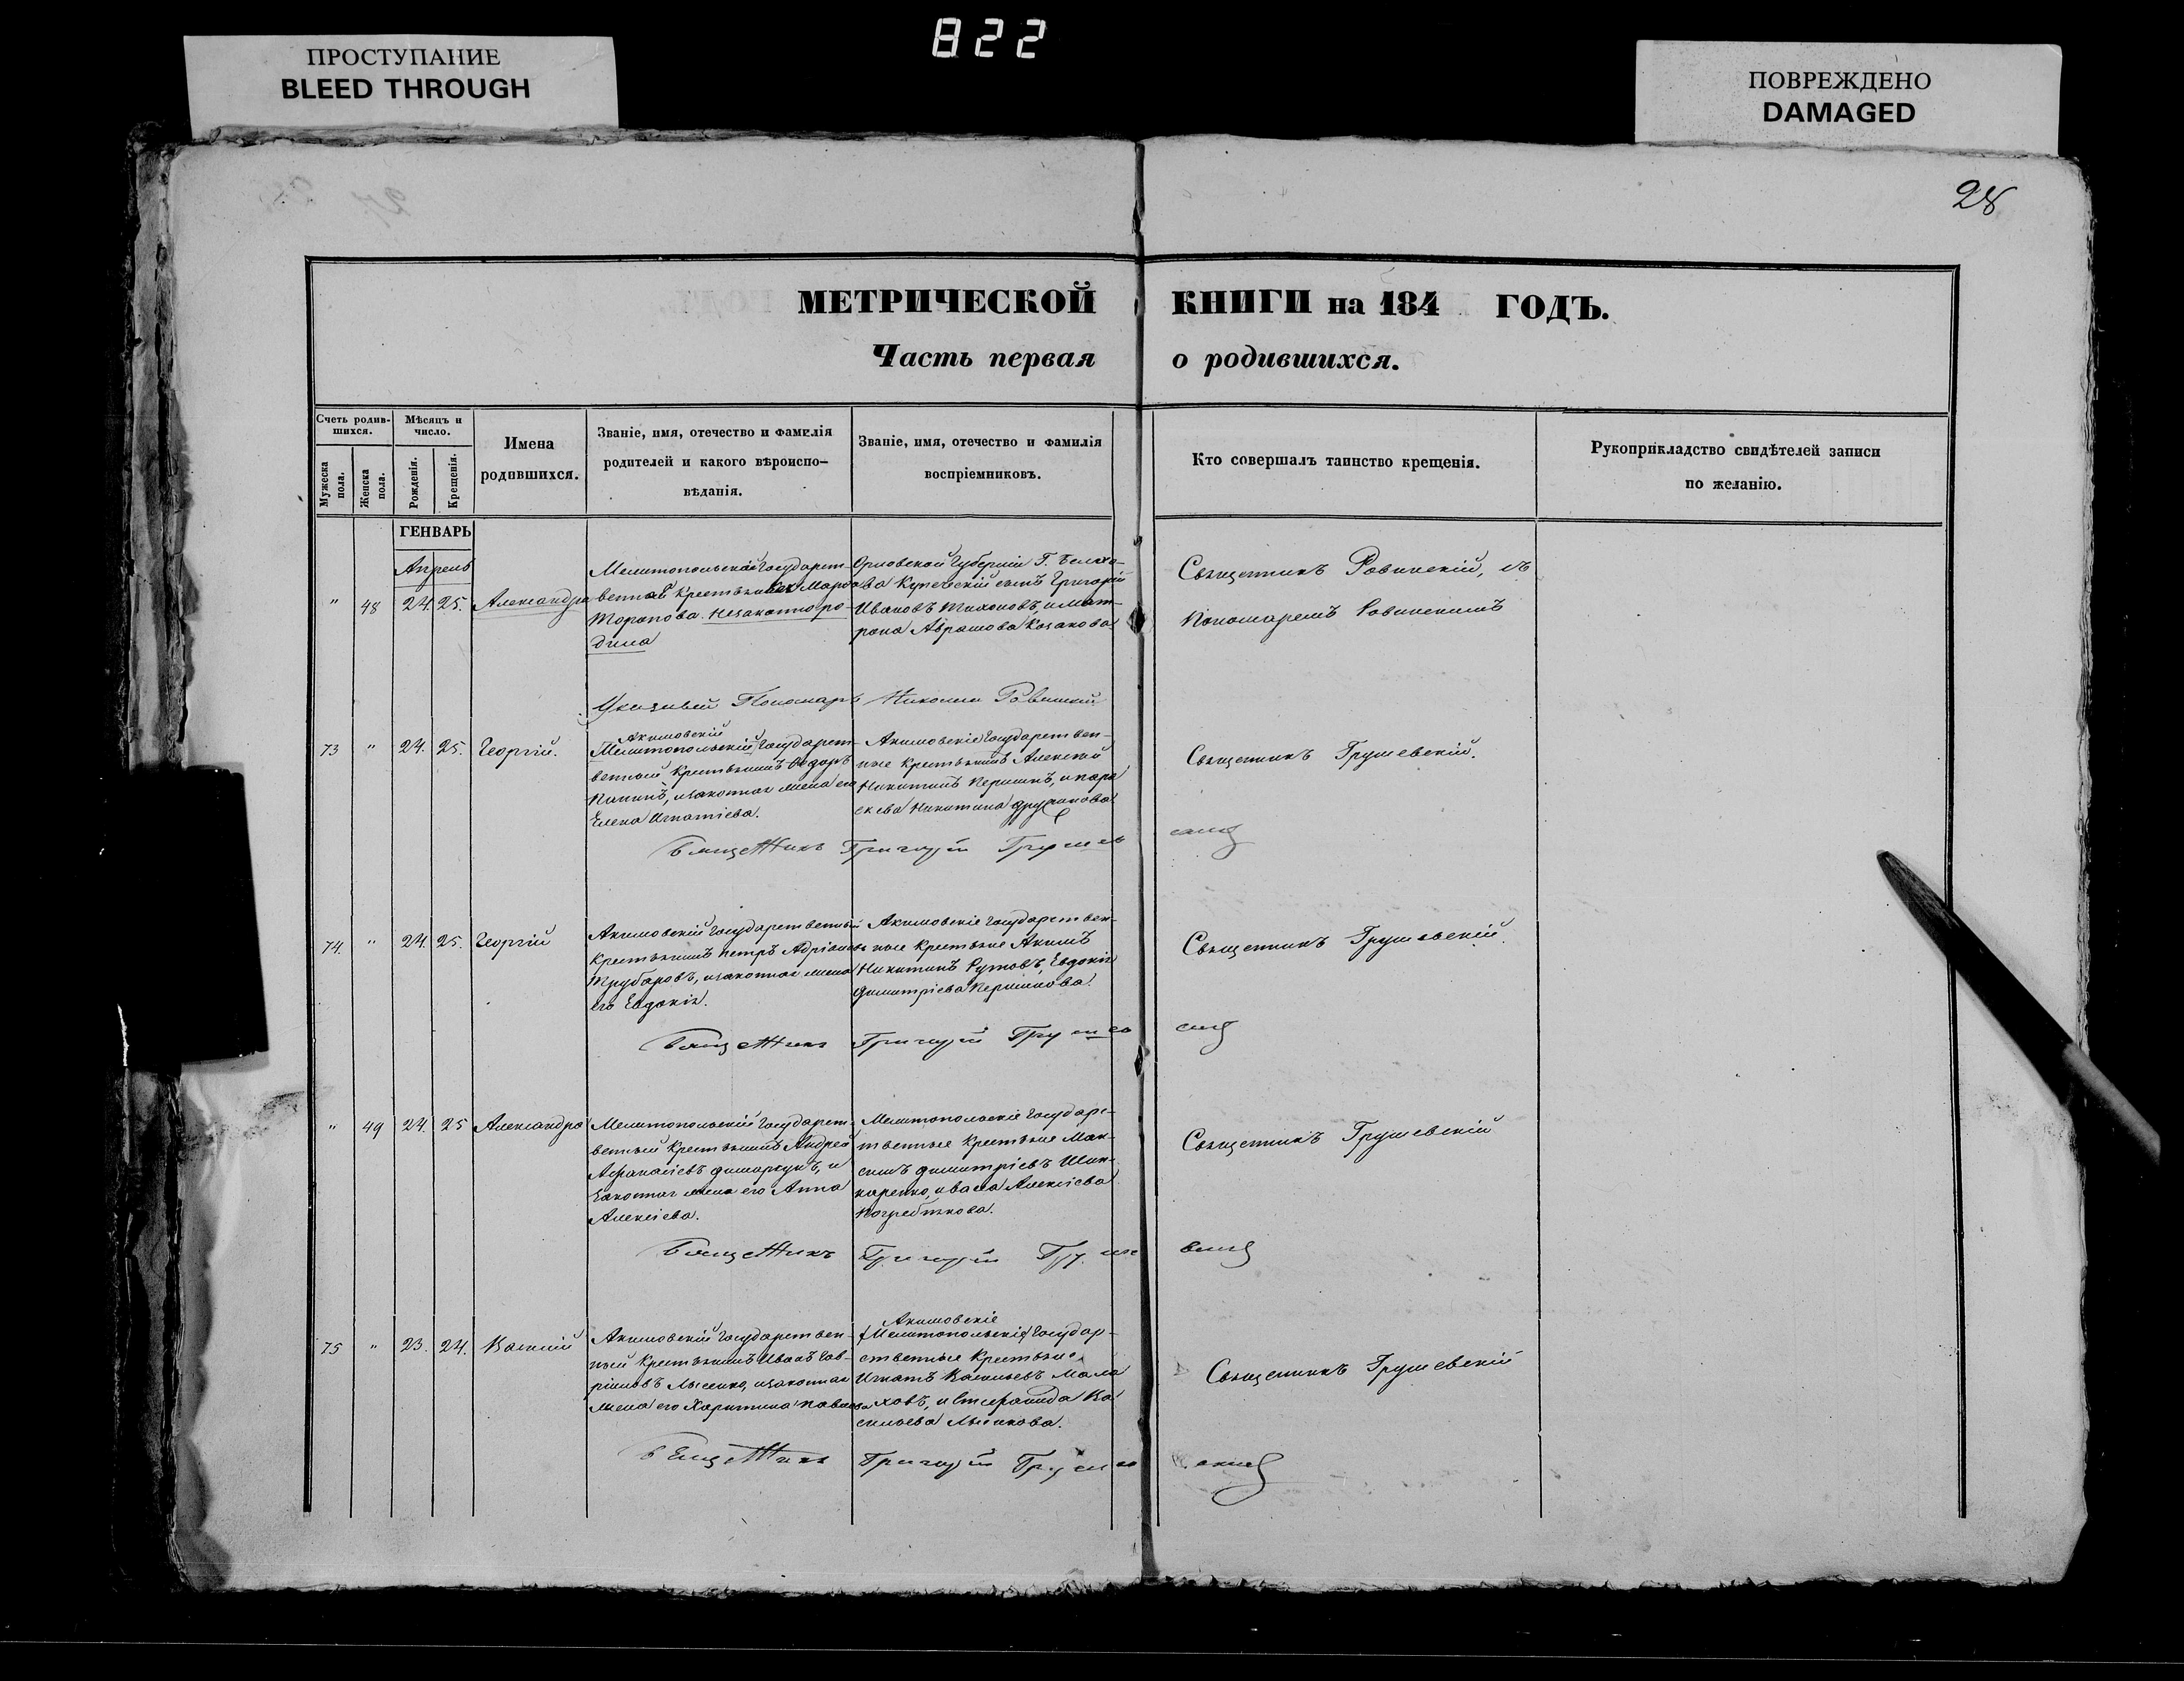 822
ПРОСТУПАНИЕ
BLEED THROUGH
ПОВРЕЖДЕНО
DAMAGED
28
МЕТРИЧЕСКОЙ КНИГИ на 184 ГОДЪ.
Часть первая о родившихся.
Счетъ родив-
шихся.
Мужеска пола.
Женска пола.
Мѣсяцъ и
число.
Рожденія.
Крещенія.
Имена
родившихся.
Званіе, имя, отечество и фамилія
родителей и какого вѣроиспо-
вѣданія.
Званіе, имя, отечество и фамилія
воспріемниковъ.
Кто совершалъ таинство крещенія.
Рукоприкладство свидѣтелей записи
по желанію.
ГЕНВАРЬ
Апрель
" 48 24. 25. Александра
Мелитопольская Государст-
венная Крестьянка Марѳа
Торопова. Незаконно ро-
Орловской Губерніи Г.
Купеческій сынъ Григорій
Ивановъ Тихоновъ, и Мат-
рона Абрамова Казакова
Священникъ Ровинскій, съ
Пономаремъ Ровинскимъ
Пономарь Николай Ровинскій
73 " 24. 25. Георгій.
Акимовскій
Мелитопольскій Государст-
венный Крестьянинъ Ѳедоръ
изаконная жена его
Елена Игнатіева.
Акимовскіе Государствен-
ные Крестьянинъ Алексѣй
Никитинъ Першинъ, и Пара
скева Никитина
Священникъ Грушевскій.
Священникъ Григорій Грушевскій
74. " 24. 25. Георгій
Акимовскій Государственный
Крестьянинъ Петръ Адріановъ
Трубаровъ, изаконная жена
его Евдокія.
Акимовскіе Государствен-
ные Крестьяне Акимъ
Никитинъ Евдокія
Димитріева Першикова.
Священникъ Грушевскій.
Священникъ Григорій Грушевскій
" 49 24. 25 Александра
Мелитопольскій Государст-
венный Крестьянинъ Андрей
Афанасіевъ и
законная жена его Анна
Алексіева.
Мелитопольскіе Государс-
твенные Крестьяне Мак-
симъ Димитріевъ Шин-
каренко, и Васса Алексіева
Погребнякова.
Священникъ Грушевскій
Священникъ Григорій Грушевскій
75 " 23. 24. Василій
Акимовскій Государствен-
ный Крестьянинъ Иванъ Гав-
риловъ Лысенко, изаконная
жена его Харитина Павлова
Акимовскіе
(Мелитопольскіе) Государ-
ственные Крестьяне
Игнатъ Васильевъ Мала
ховъ, и Степанида Ва
сильева Лысикова.
Священникъ Грушевскій
Священникъ Григорій Грушевскій